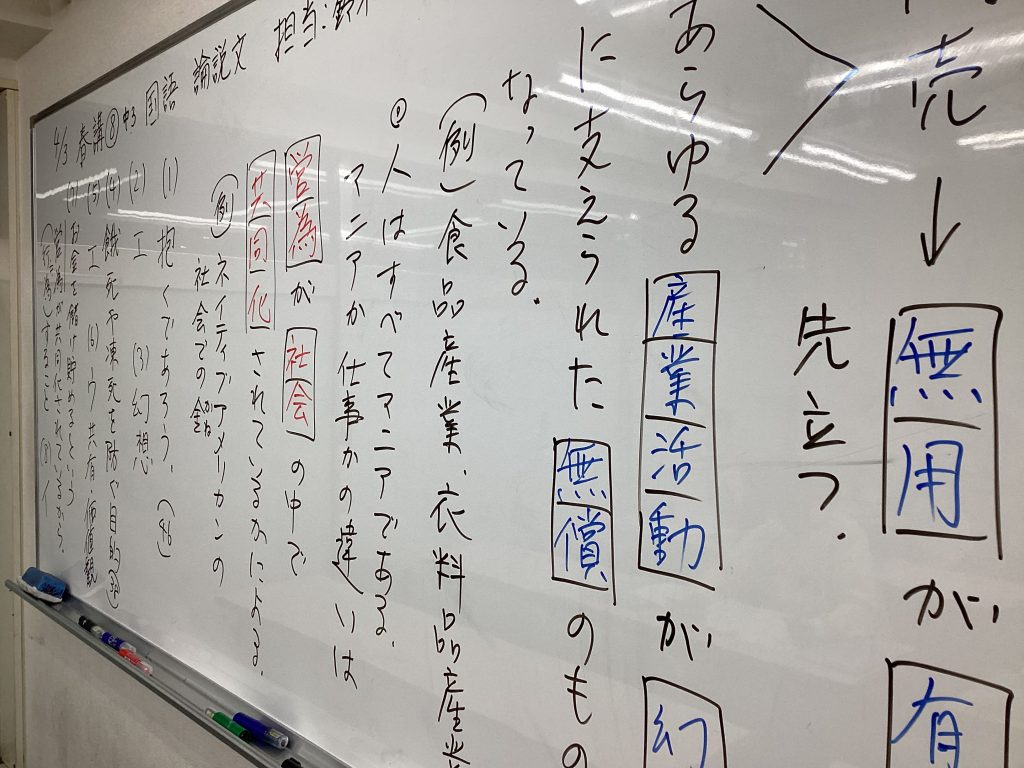 売→無用が有
先立つ.
あらゆる産業活動が幻
に支えられた無償のもの
なっている.
(例)食品産業、衣料品産業
①人はすべてマニアである.
マニアか仕事かの違いは
営為が社会の中で
共同化されているかによる.
(例)ネイティブアメリカンの
社会での金
かね
(1)抱くであろう. (46)
(2)エ (3)幻想
(4)餓死や凍死を防ぐ目的
(5)エ (6)ウ 共有 価値観
(7)お金を儲け貯めるという
営為が共同化されているから.
(行為)すること (8)イ
4/3 春講⑧ 中3 国語 論説文 担当:鈴木